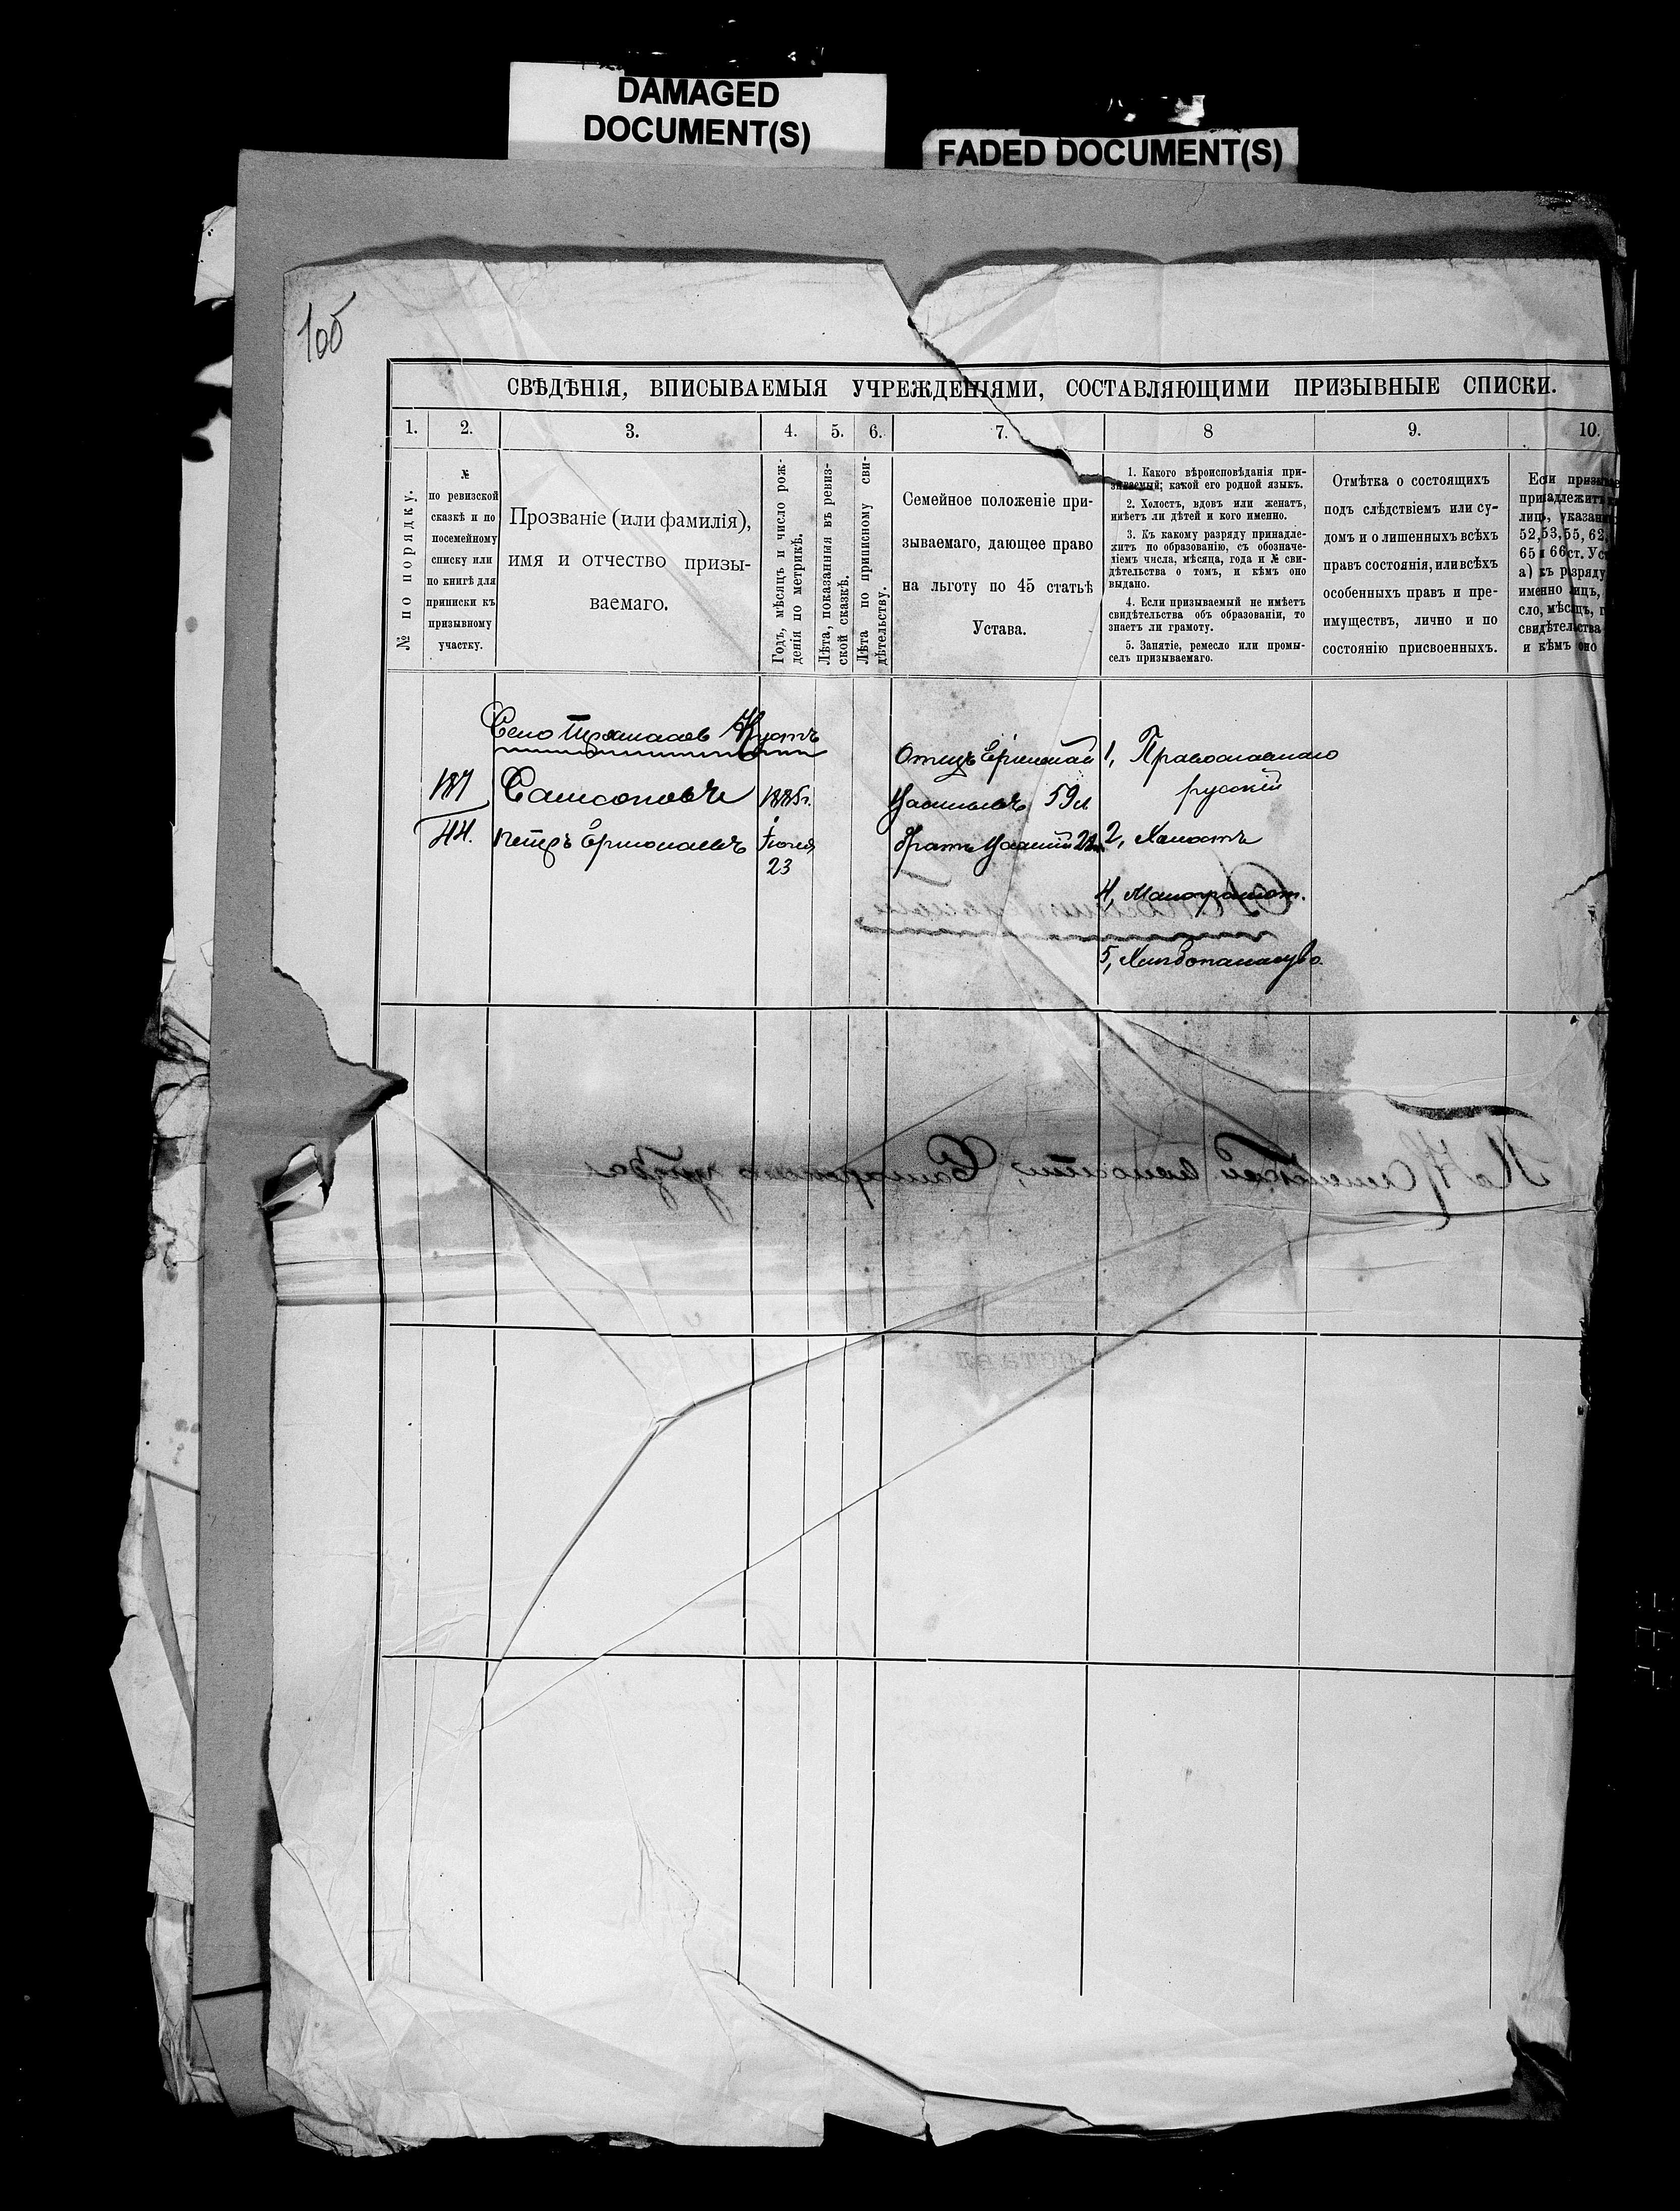 DAMAGED
DOCUMENT(S)
FADED DOCUMENT(S)
105
СВѢДѢНІЯ, ВПИСЫВАЕМЫЯ УЧРЕЖДЕНІЯМИ, СОСТАВЛЯЮЩИМИ ПРИЗЫВНЫЕ СПИСКИ.
1. 2. 3. 4. 5. 6. 7. 8 9. 10.
№ по порядку.
№
по ревизской
сказкѣ и по
посемейному
списку или
по книгѣ для
приписки къ
призывному
участку.
Прозваніе (или фамилія),
имя и отчество призы-
ваемаго.
Годъ, мѣсяцъ и число рож-
денія по метрикѣ.
Лѣта, показанныя въ ревиз-
ской сказкѣ.
Лѣта по приписному сви-
дѣтельству.
Семейное положеніе при-
зываемаго, дающее право
на льготу по 45 статьѣ
Устава.
1. Какого вѣроисповѣданія при-
зываемый; какой его родной языкъ.
2. Холостъ, вдовъ или женатъ,
имѣетъ ли дѣтей и кого именно.
3. Къ какому разряду принадле-
житъ по образованію, съ обозначе-
ніемъ числа, мѣсяца, года и № сви-
дѣтельства о томъ, и кѣмъ оно
выдано.
4. Если призываемый не имѣетъ
свидѣтельства объ образованіи, то
знаетъ ли грамоту.
5. Занятіе, ремесло или промы-
селъ призываемаго.
Отмѣтка о состоящихъ
подъ слѣдствіемъ или су-
домъ и о лишенныхъ всѣхъ
правъ состоянія, или всѣхъ
особенныхъ правъ и пре-
имуществъ, лично и по
состоянію присвоенныхъ.
Если призывае
принадлежитъ
лицъ, указанн
52, 53, 55, 62,
65 и 66 ст. Ус
а) къ разряду
именно лицъ,
сло, мѣсяцъ, г
свидѣтельства
и кѣмъ оно
Село Кустъ
187
44.
Самсоновъ
Петръ Ермолаевъ
1885г.
Іюня
23
Отецъ
Васильевъ 59л
Братъ Василій 22
1, Православнаго
русскій
2, Холостъ
4, Малограмот.
5, Хлѣбопашество